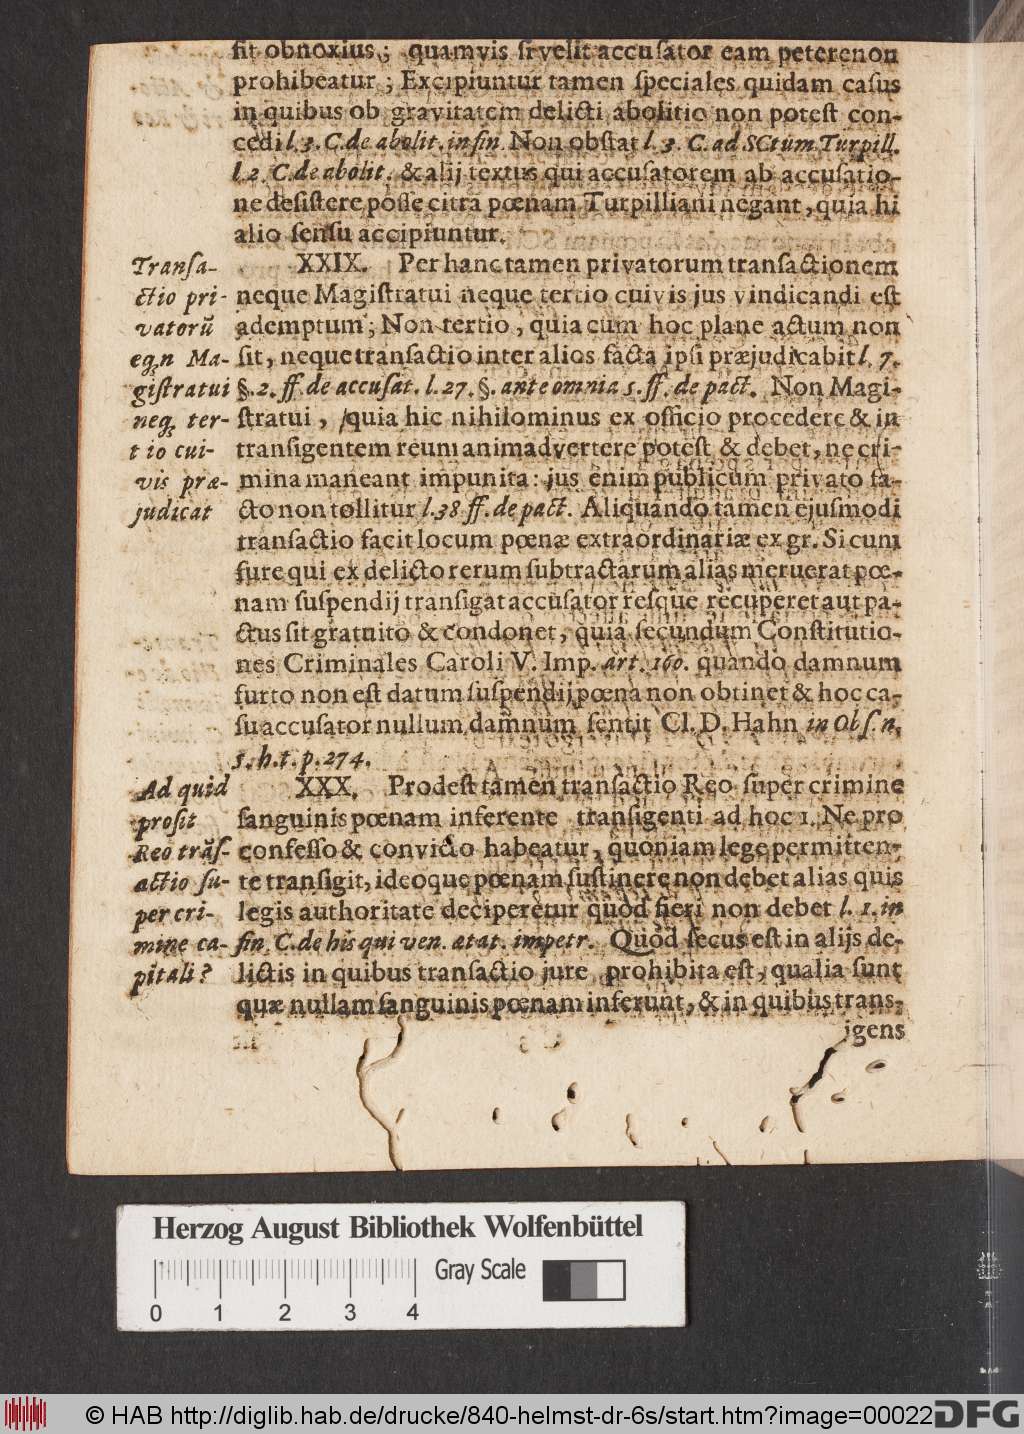 sit obnoxius; quamvis si velit accusator eam petere non
prohibeatur; Excipiuntur tamen speciales quidam casus
in quibus ob gravitatem delicti abolitio non potest con-
cedi l. 3. C. de abolit. in fin. Non obstat l. 3. C. ad SCtum Turpill.
l. 2. C. de abolit. & alij textus qui accusatorem ab accusatio-
ne desistere posse citra pœnam Turpilliani negant, quia hi
alio sensu accipiuntur.
Transa-
ctio pri-
vatorũ
eq̃n Ma-
gistratui
neq; ter-
tio cui-
vis præ-
judicat
XXIX. Per hanc tamen privatorum transactionem
neque Magistratui neque tertio cuivis jus vindicandi est
ademptum; Non tertio, quia cum hoc plane actum non
sit, neque transactio inter alios facta ipsi præjudicabit l. 7.
§. 2. ff. de accusat. l. 27. §. ante omnia 5. ff. de pact. Non Magi-
stratui, quia hic nihilominus ex officio procedere & in
transigentem reum animadvertere potest & debet, ne cri-
mina maneant impunita: jus enim publicum privato fa-
cto non tollitur l. 38 ff. de pact. Aliquando tamen ejusmodi
transactio facit locum pœnæ extraordinariæ ex gr. Si cum
fure qui ex delicto rerum subtractarum alias meruerat pœ-
nam suspendij transigat accusator resque recuperet aut pa-
ctus sit gratuito & condonet, quia secundum Constitutio-
nes Criminales Caroli V. Imp. art. 160. quando damnum
furto non est datum suspendij pœna non obtinet & hoc ca-
su accusator nullum damnum sentit Cl. D. Hahn in Obs. n.
5. h. t. p. 274.
Ad quid
prosit
Reo trãs-
actio su-
per cri-
mine ca-
pitali?
XXX. Prodest tamen transactio Reo super crimine
sanguinis pœnam inferente transigenti ad hoc 1. Ne pro
confesso & convicto habeatur, quoniam lege permitten-
te transigit, ideoque pœnam sustinere non debet alias quis
legis authoritate deciperetur quod fieri non debet l. 1. in
fin. C. de his qui ven. ætat. impetr. Quod secus est in alijs de-
lictis in quibus transactio jure prohibita est, qualia sunt
quæ nullam sanguinis pœnam inferunt, & in quibus trans-
igens
Herzog August Bibliothek Wolfenbüttel
Gray Scale
0 1 2 3 4
© HAB http://diglib.hab.de/drucke/840-helmst-dr-6s/start.htm?image=00022
DFG